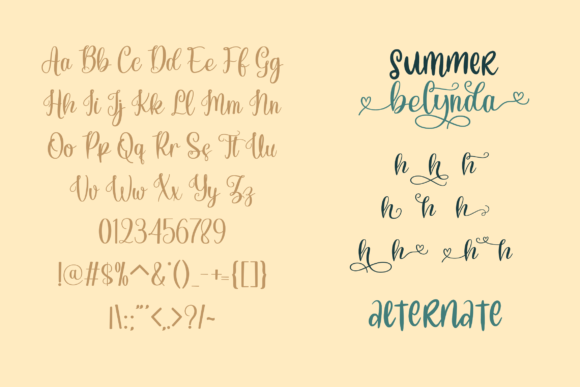 Aa Bb Cc Dd Ee Ff Gg
Hh Ii Jj Kk Ll Mm Nn
Oo Pp Qq Rr Ss Tt Uu
Vv Ww Xx Yy Zz
0123456789
!@#$%^&*()_-+={[]}
|\:;"'<,.>?/~
SUMMER
belynda
h h h
h h h
h h h h
ALTERNATE